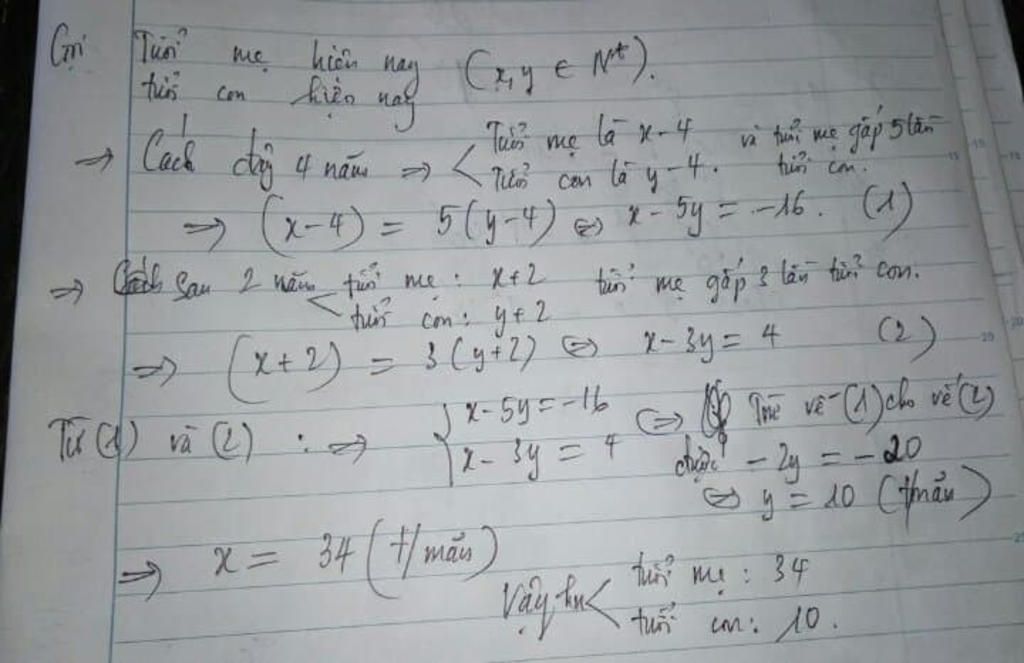 Gọi Tuổi mẹ hiện nay (x, y ∈ N*).
tuổi con hiện nay
=> Cách đây 4 năm => < Tuổi mẹ là x-4 và tuổi mẹ gấp 5 lần
Tuổi con là y-4. tuổi con.
=> (x-4) = 5(y-4) <=> x - 5y = -16. (1)
=> Sau 2 năm < tuổi mẹ: x+2 tuổi mẹ gấp 3 lần tuổi con.
tuổi con: y+2
=> (x+2) = 3(y+2) <=> x-3y = 4 (2)
Từ (1) và (2) : => { x-5y = -16 <=> Trừ vế (1) cho vế (2)
x - 3y = 4 được - 2y = -20
<=> y = 10 (t/mãn)
=> x = 34 (t/mãn)
Vậy hn < tuổi mẹ: 34
tuổi con: 10.